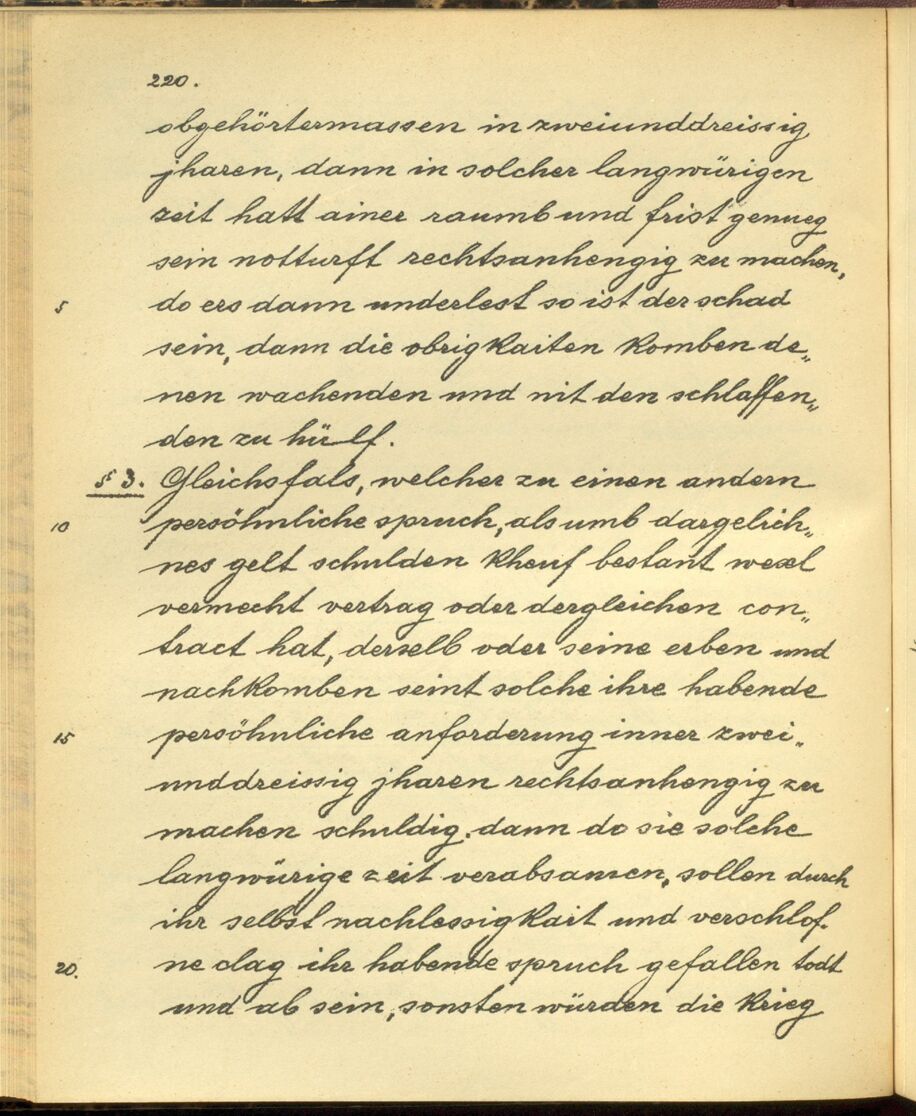 220.
obgehörtermassen in zweiunddreissig
jharen, dann in solcher langwürigen
zeit hatt ainer raumb und frist genueg
sein notturft rechtsanhengig zu machen,
5 do ers dann underlest so ist der schad
sein, dann die obrigkaiten komben de„
nen wachenden und nit den schlaffen„
den zu hülf.
§ 3. Gleichsfals, welcher zu einen andern
10 persöhnliche spruch, als umb dargelich„
nes gelt schulden kheuf bestant wexl
vermecht vertrag oder dergleichen con„
tract hat, derselb oder seine erben und
nachkomben seint solche ihre habende
15 persöhnliche anforderung inner zwei„
unddreissig jharen rechtsanhengig zu
machen schuldig. dann do sie solche
langwürige zeit verabsamen, sollen durch
ihr selbst nachlessigkait und verschlof.
20. ne clag ihr habende spruch gefallen todt
und ab sein, sonsten würden die krieg